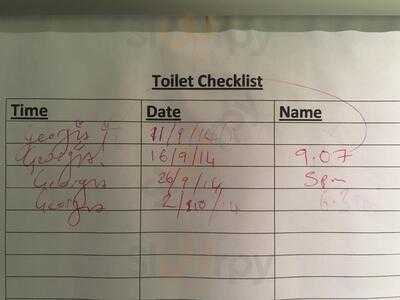 Toilet Checklist
Time Date Name
Georgis 11/9/14
Georgis. 16/9/14 9.07
Georgis 26/9/14 5pm
Georgis 2/10/14